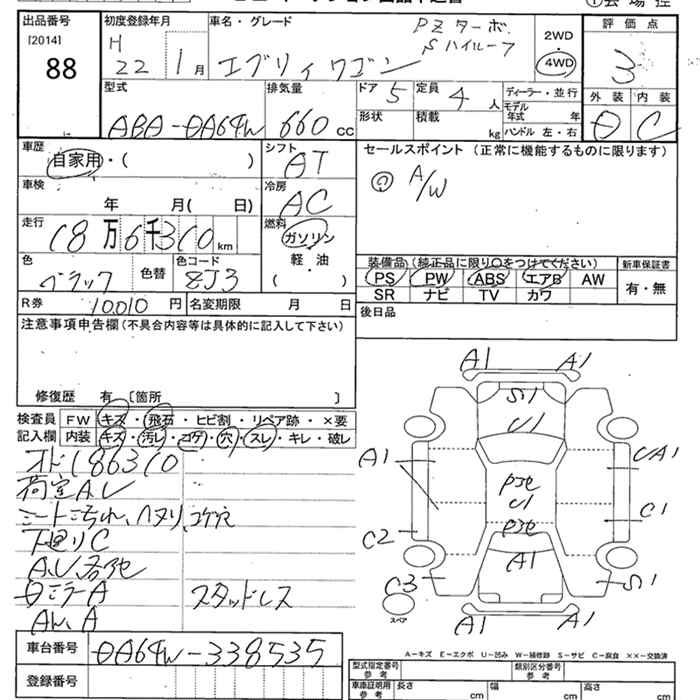 出品番号
[2014]
88
初度登録年月
H 22 1月
車名・グレード
PZターボ
Sハイルーフ
エブリィワゴン
2WD
4WD
評価点
3
外装 内装
C
型式
ABA-DA64W
排気量
660cc
ドア 5
定員 4人
形状
積載 kg
ディーラー・並行
モデル年式 年
ハンドル 左・右
車歴
自家用・( )
シフト
AT
セールスポイント (正常に機能するものに限ります)
A/W
車検
年 月( 日)
冷房
AC
走行
18万6千310km
燃料
ガソリン
軽・油
( )
色
ブラック
色替
色コード
ZJ3
装備品(純正品に限り○をつけてください)
PS PW ABS エアB AW
SR ナビ TV カワ
新車保証書
有・無
R券 10,010円
名変期限 月 日
後日品
注意事項申告欄(不具合内容等は具体的に記入して下さい)
修復歴 有 [箇所 ]
検査員 FW キズ・飛石・ヒビ割・リペア跡・×要
記入欄 内装 キズ・汚レ・コゲ・穴・スレ・キレ・破レ
オド186310
荷室A.U
シートヨゴれ、ヘタリ、コゲ穴
下廻りC
A.U各地
ミラーA スタッドレス
A1 A1
S1
U1
A1
UA1
U1
C1
C2
A1
C3
S1
スペア
A1 A1
A-キズ E-エクボ U-凹み W-補修跡 S-サビ C-腐食 ××-交換済
車台番号
DA64W-338535
登録番号
型式指定番号 参考
類別区分番号 参考
車庫証明用 参考
長さ cm
幅 cm
高さ cm